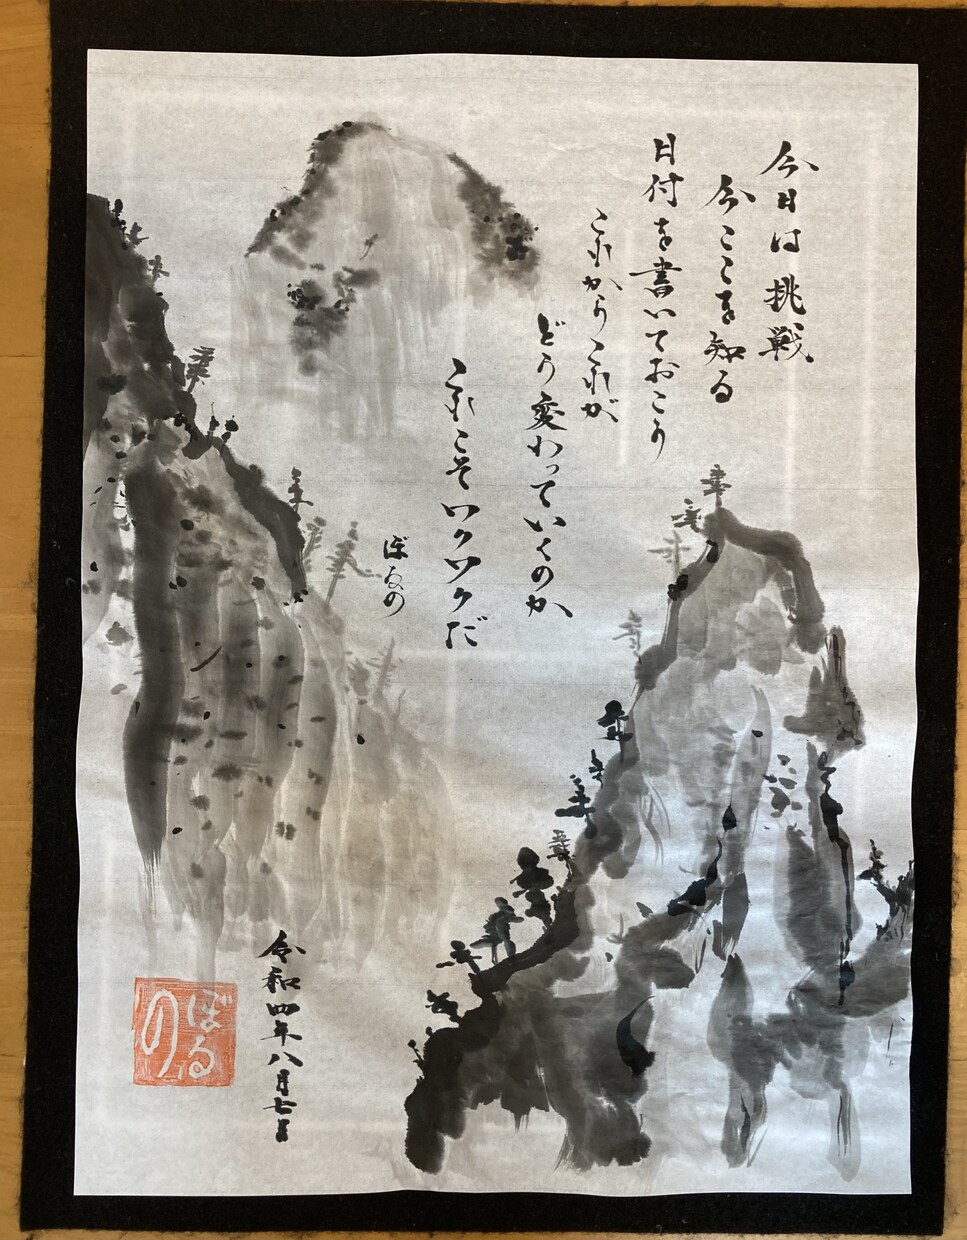 今日は挑戦
今ここを知る
日付を書いておこう
これからこれが
どう変わっていくのか
これこそワクワクだ
ぼるの
令和四年八月七日
ぼる
の